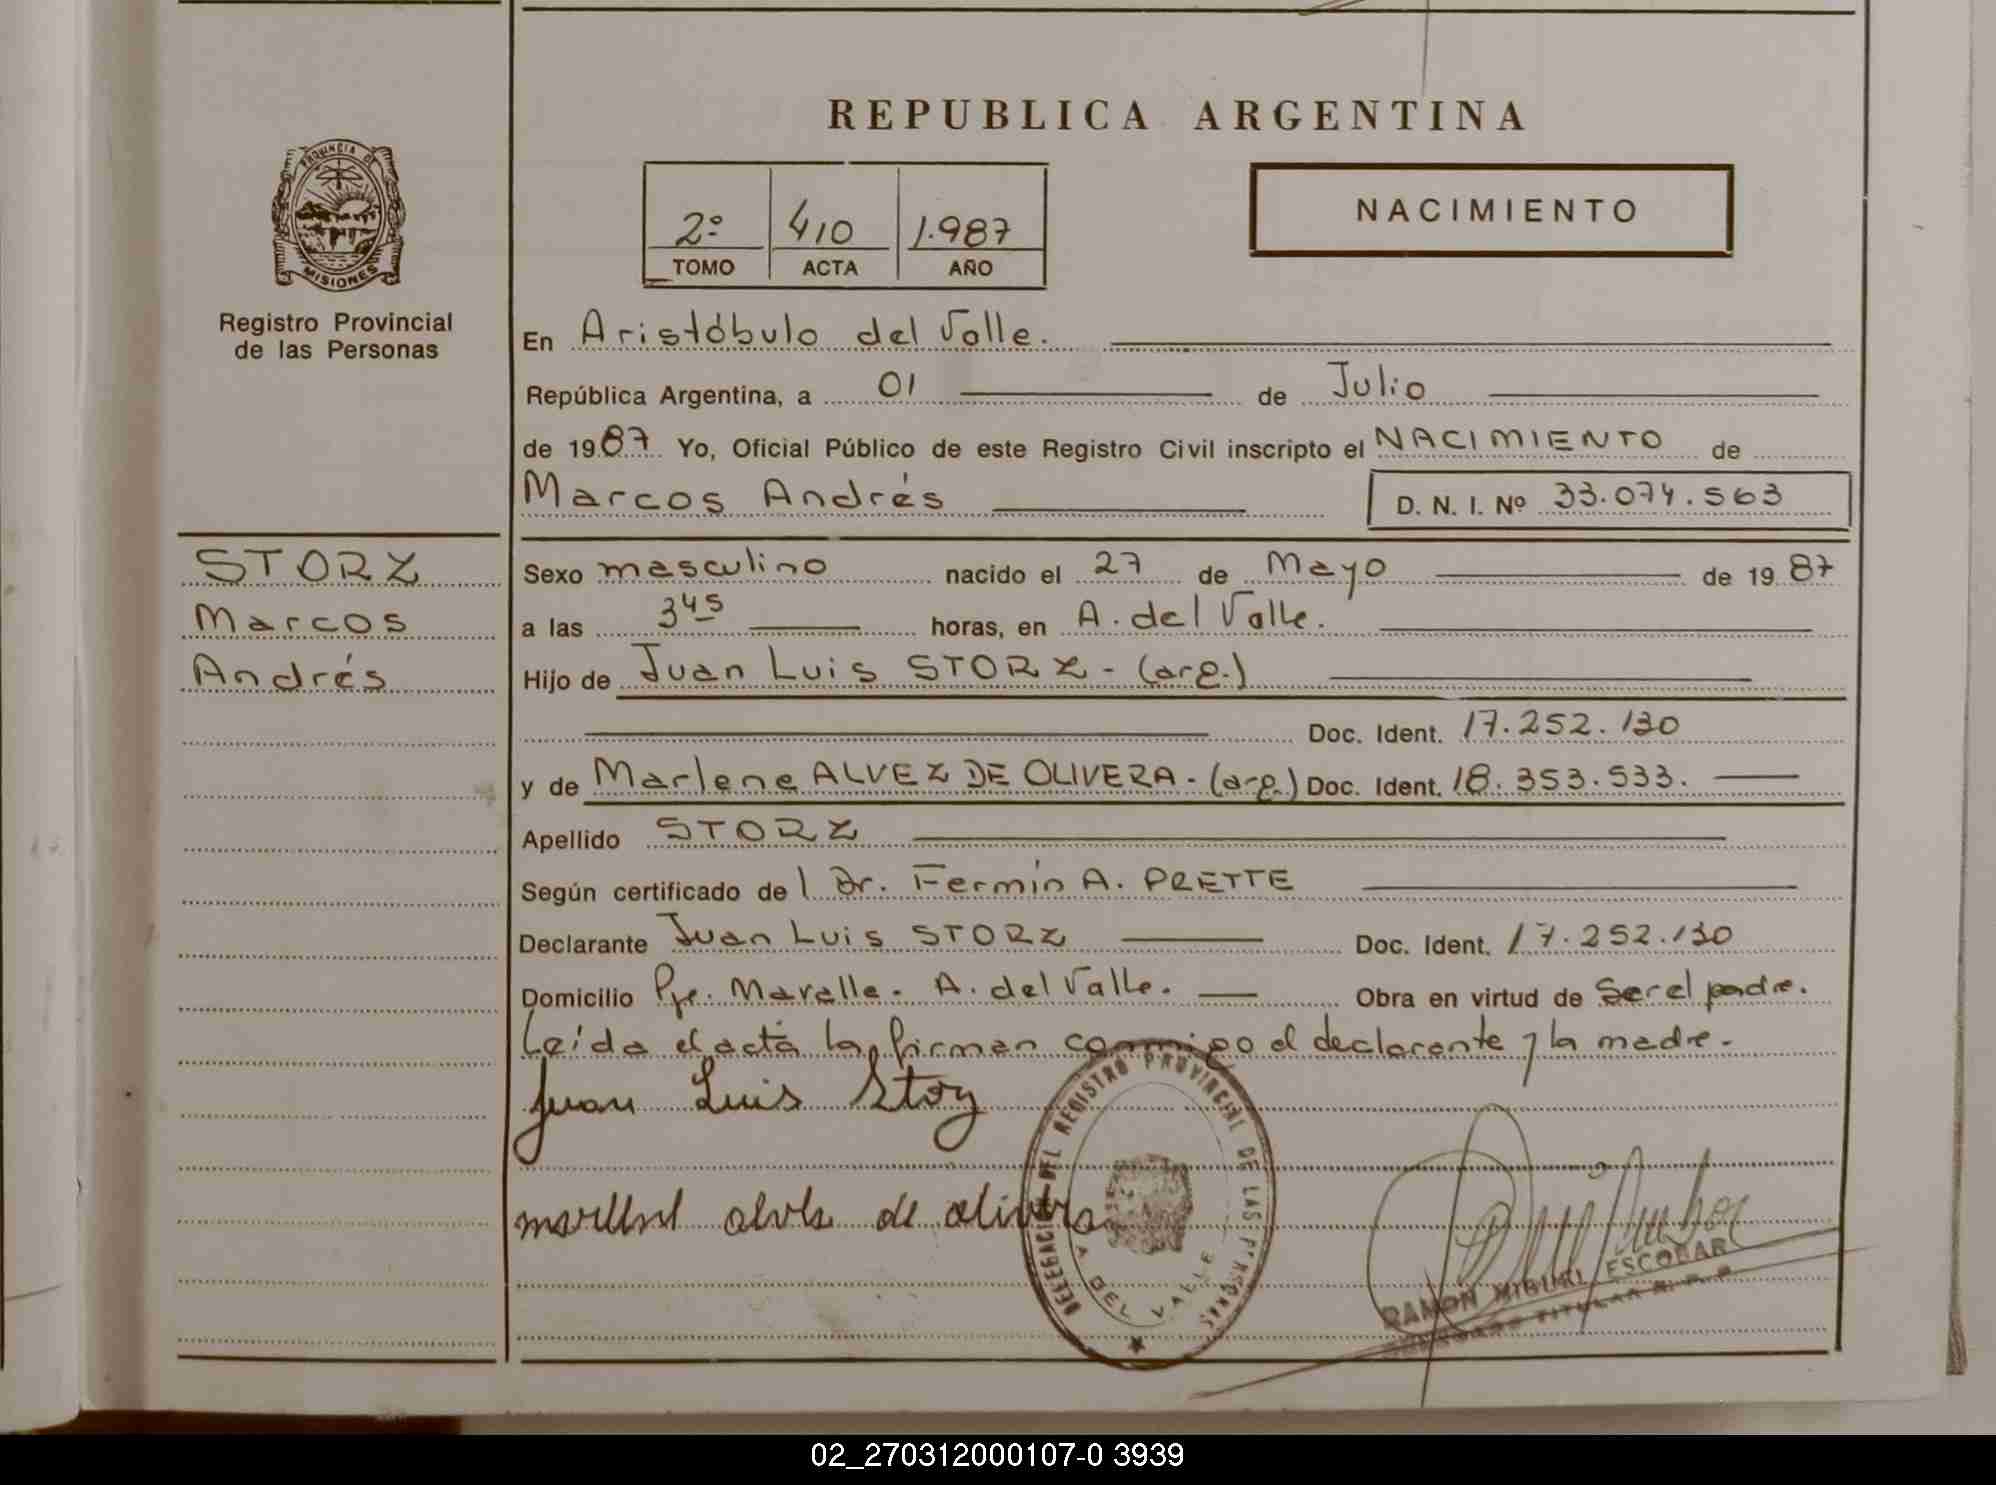 REPUBLICA ARGENTINA
PROVINCIA DE
MISIONES
Registro Provincial
de las Personas
2º 410 1.987
TOMO ACTA AÑO
NACIMIENTO
En Aristóbulo del Valle.
República Argentina, a 01 de Julio
de 1987 Yo, Oficial Público de este Registro Civil inscripto el NACIMIENTO de
Marcos Andrés D. N. I. Nº 33.074.563
STORZ
Marcos
Andrés
Sexo masculino nacido el 27 de Mayo de 1987
a las 3 45 horas, en A. del Valle.
Hijo de Juan Luis STORZ - (arg.)
Doc. Ident. 17.252.130
y de Marlene ALVEZ DE OLIVERA - (arg.) Doc. Ident. 18.353.533.
Apellido STORZ
Según certificado de l Dr. Fermín A. PRETTE
Declarante Juan Luis STORZ Doc. Ident. 17.252.130
Domicilio Pje. Maralle. A. del Valle. Obra en virtud de Ser el padre.
Leída el acta la firman conmigo el declarante y la madre.
Juan Luis Storz
de olivera
DELEGACION DEL REGISTRO PROVINCIAL DE LAS PERSONAS
A. DEL VALLE
RAMON MIGUEL ESCOBAR
TITULAR R. P. P.
02_270312000107-0 3939